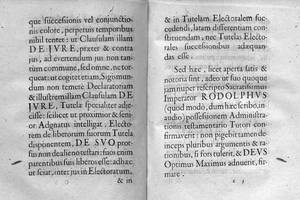 que successionis vel conjunctio-
nis colore, perpetuis temporibus
nihil tentet: ut Clausulam illam
DE JVRE, præter & contra
jus, ad evertendum jus non tan-
tum commune, sed omne, ne tor-
queat: ut cogitet etiam, Sigismun-
dum non temere Declaratoriam
& illustre illam Clausulam DE
JVRE, Tutela specialiter adje-
cisse: scilicet ut proximior & senior
Adgnatus intelligat. Electo-
rem de liberorum suorum Tutela
disponentem, DE SVO pro-
suos non de alieno testari: suos enim
parentibus suis liberos esse: adhæc
ut sciat, inter jus in Electoratum,
& in
& in Tutelam Electoralem suc-
cedendi, latam differentiam con-
stituendam, nec Tutelas Electo-
rales successionibus adæquan-
das esse.
Sed hæc, licet aperta satis &
notoria sint, adeo ut suo quoque
jam nuper rescripto Sacratissimus
Imperator RODOLPHVS
(quod modo, dum hæc scribo, in-
audio) possessionem Administra-
tionis testamentario Tutori con-
firmaverit: non pigebit tamen de-
inceps pluribus argumentis & ra-
tionibus, si fors tulerit, & DEVS
Optimus Maximus adnuerit, fir-
mare.